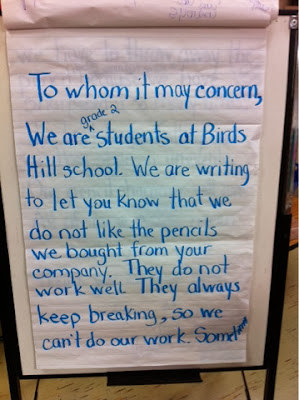 To whom it may concern,
We are grade 2 students at Birds
Hill school. We are writing
to let you know that we
do not like the pencils
we bought from your
company. They do not
work well. They always
keep breaking, so we
can't do our work. Sometimes